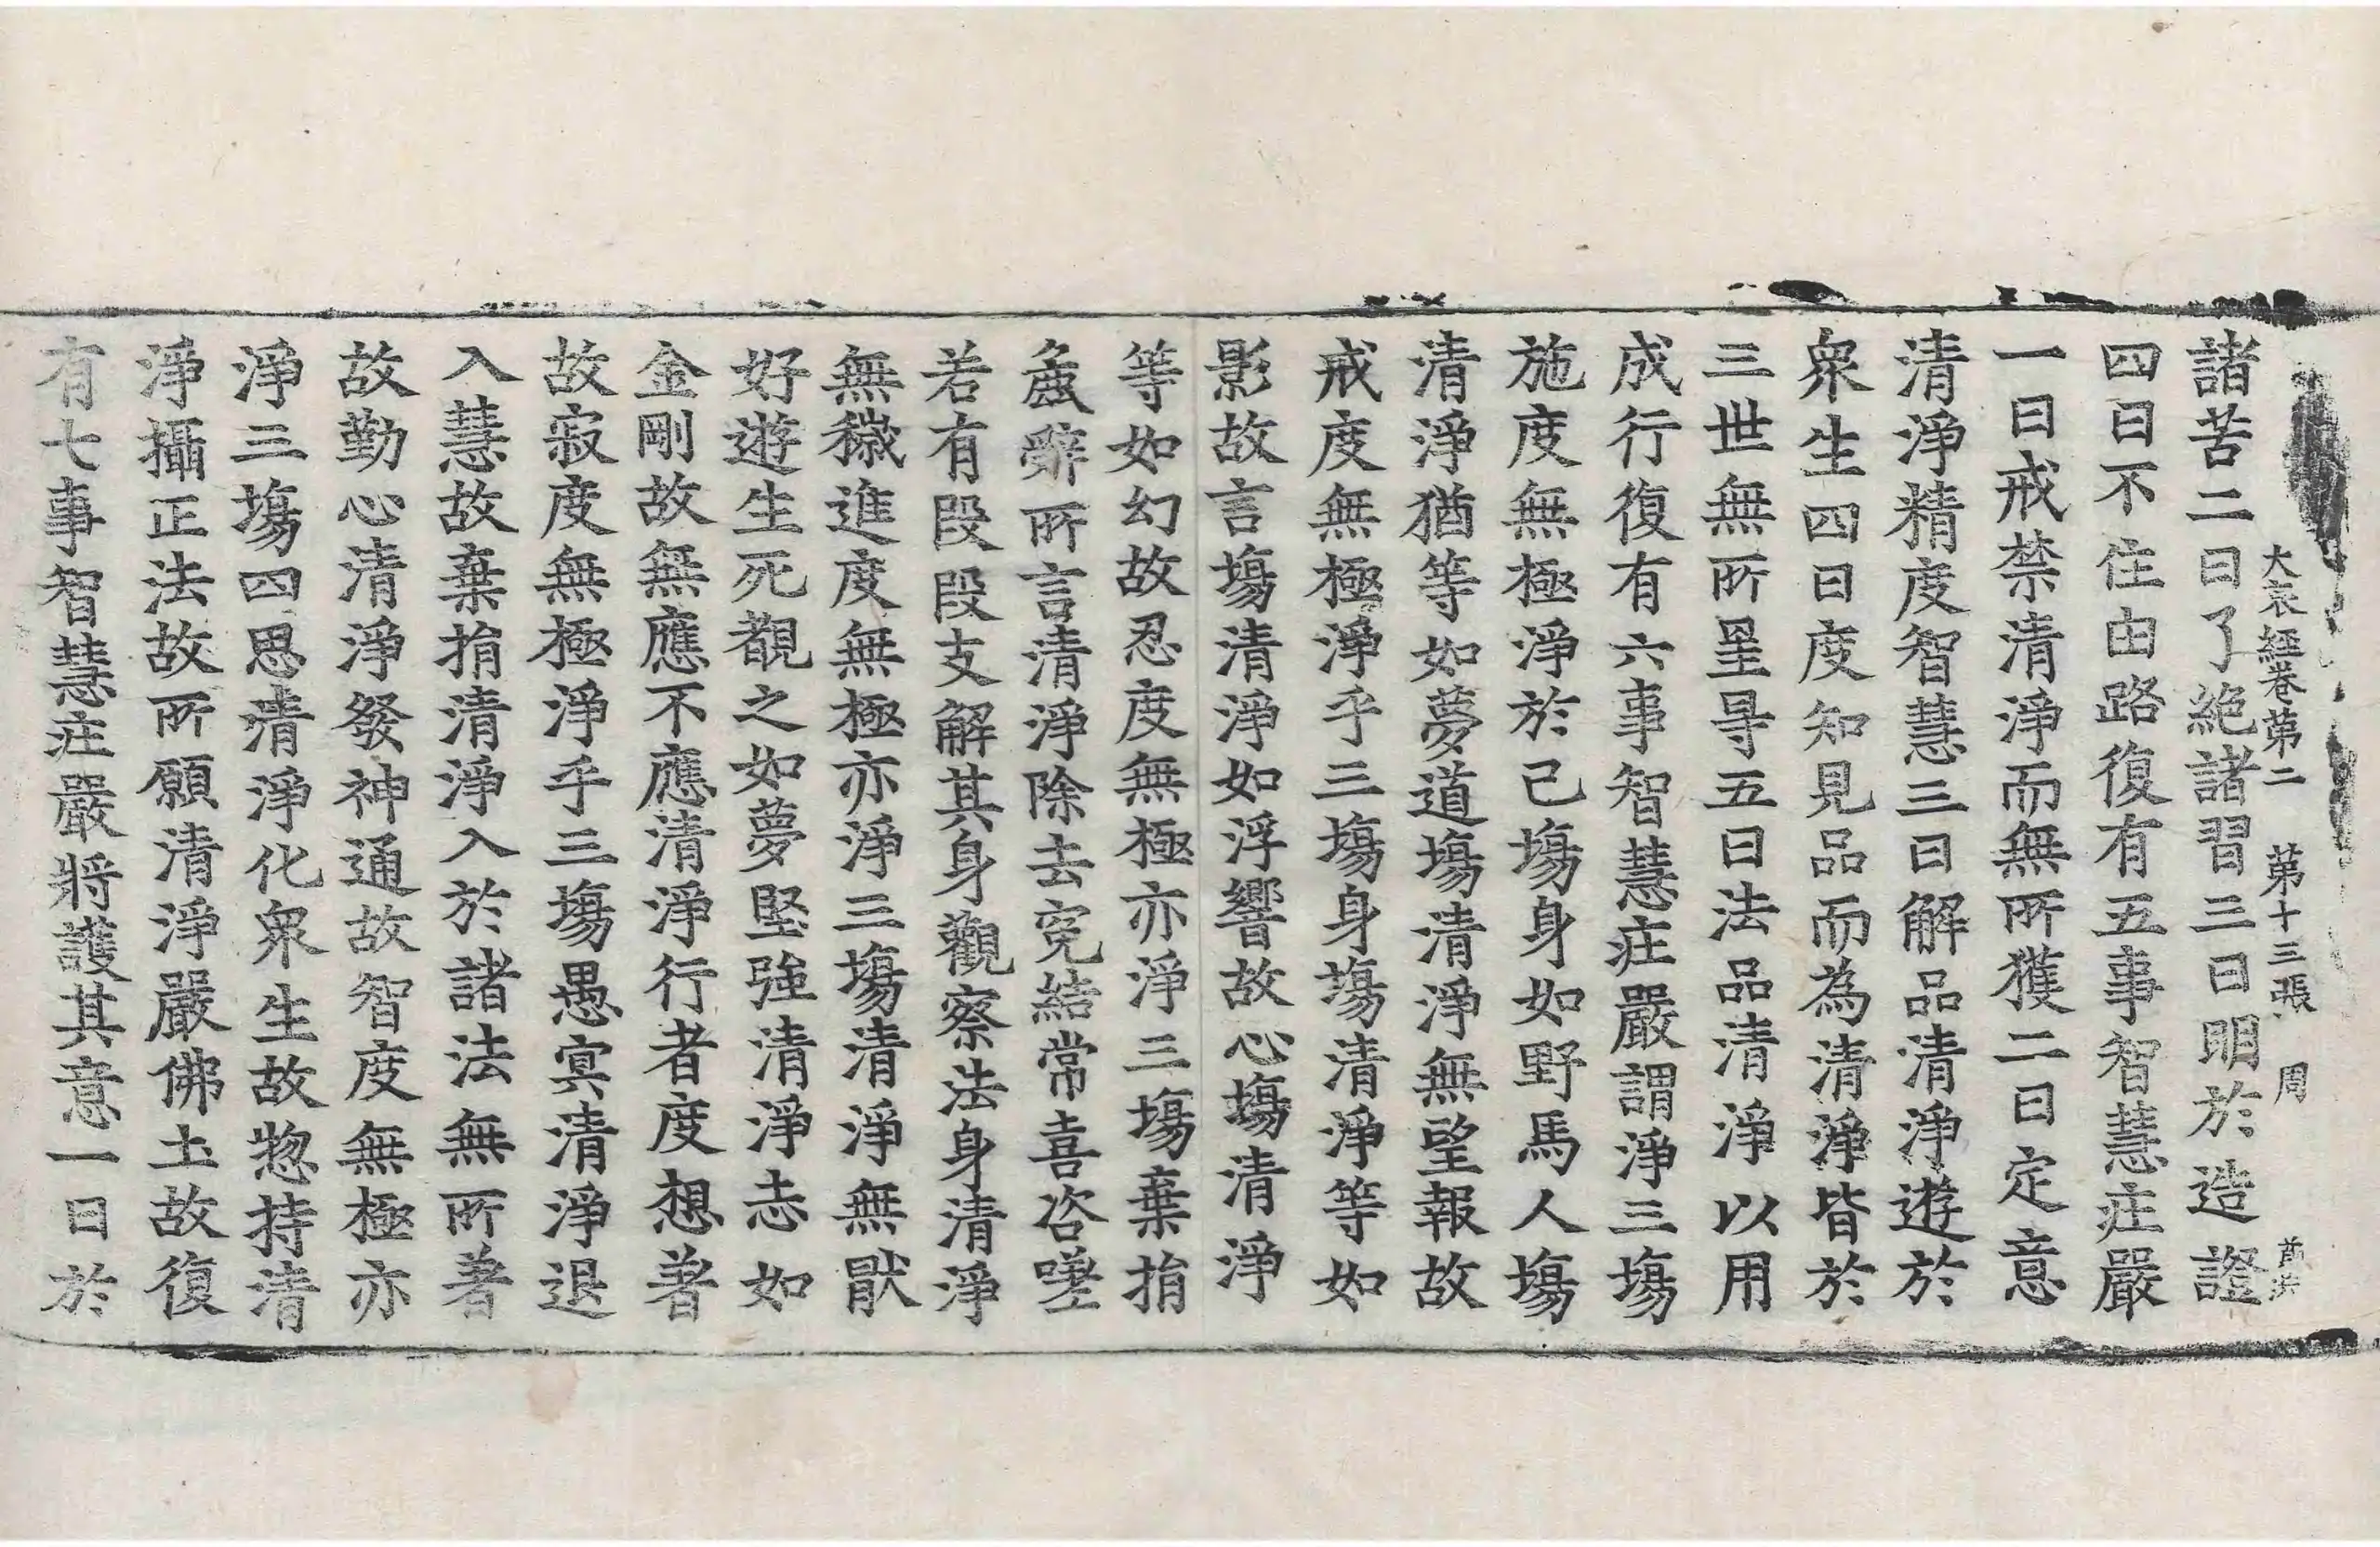 大哀經卷第二 第十三張 周
諸苦二曰了絶諸習三曰明於造證
四曰不住由路復有五事智慧庄嚴
一曰戒禁清淨而無所獲二曰定意
清淨精度智慧三曰解品清淨遊於
衆生四曰度知見品而為清淨皆於
三世無所罣㝵五曰法品清淨以用
成行復有六事智慧庄嚴謂淨三塲
施度無極淨於己塲身如野馬人塲
清淨猶等如夢道塲清淨無望報故
戒度無極淨乎三塲身塲清淨等如
影故言塲清淨如浮響故心塲清淨
等如幻故忍度無極亦淨三塲棄捐
麁辭所言清淨除去寃結常喜咨嗟
若有段段支解其身觀察法身清淨
無穢進度無極亦淨三塲清淨無猒
好遊生死覩之如夢堅強清淨志如
金剛故無應不應清淨行者度想著
故寂度無極淨乎三塲愚㝠清淨退
入慧故棄捐清淨入於諸法無所著
故勤心清淨發神通故智度無極亦
淨三塲四思清淨化衆生故惣持清
淨攝正法故所願清淨嚴佛土故復
有七事智慧庄嚴將護其意一曰於